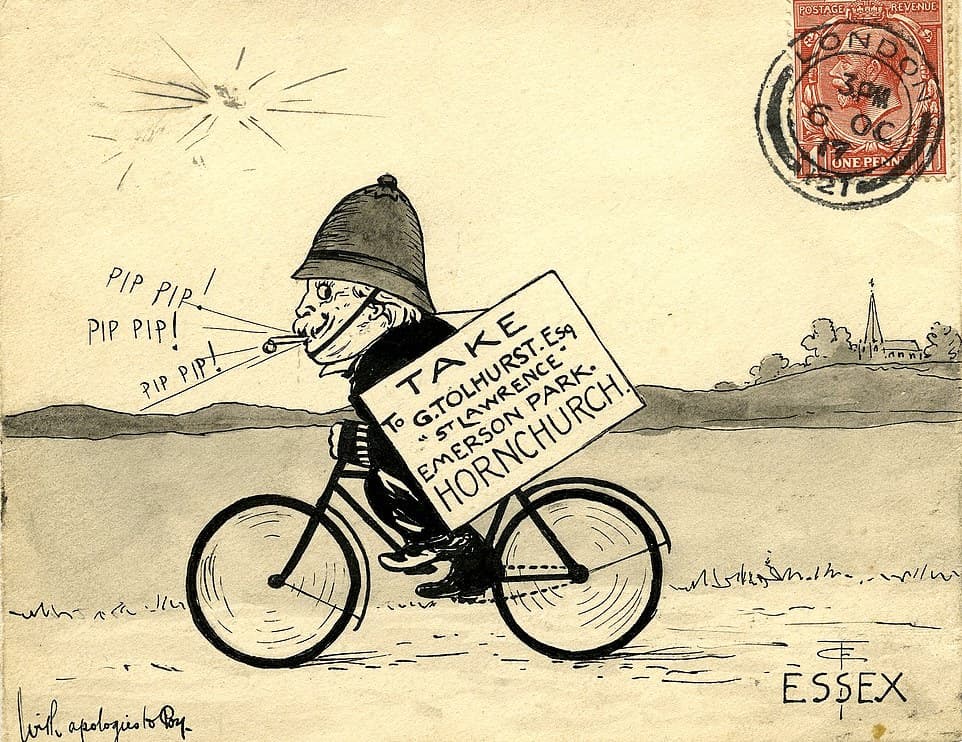 POSTAGE REVENUE
LONDON
3.PM
6 OC
17
21
ONE PENNY
PIP PIP!
PIP PIP!
PIP PIP!
TAKE
To G.TOLHURST. Esq
"ST LAWRENCE"
EMERSON PARK.
HORNCHURCH.
ESSEX
With apologies to